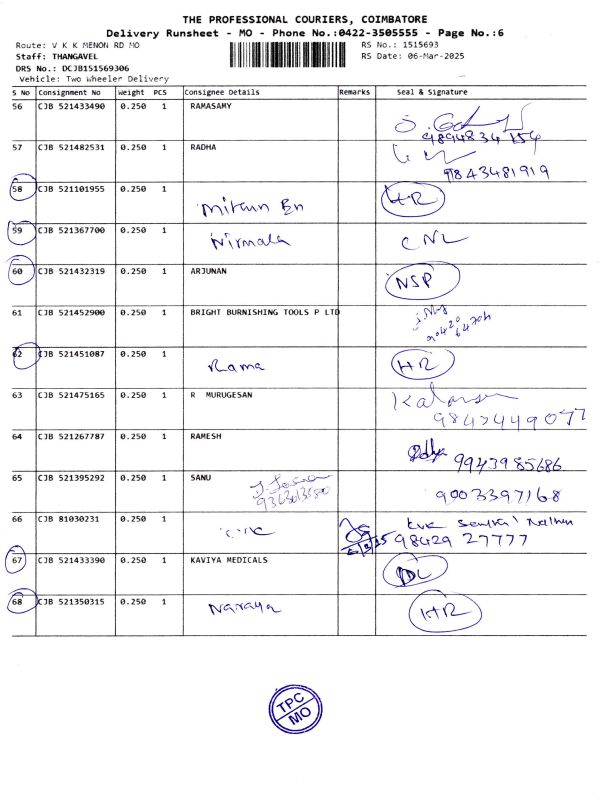 THE PROFESSIONAL COURIERS, COIMBATORE
Delivery Runsheet - MO - Phone No.:0422-3505555 - Page No.:6
Route: V K K MENON RD MO RS No.: 1515693
Staff: THANGAVEL RS Date: 06-Mar-2025
DRS No.: DCJB151569306
Vehicle: Two Wheeler Delivery
S No Consignment No Weight PCS Consignee Details Remarks Seal & Signature
56 CJB 521433490 0.250 1 RAMASAMY
9894834154
57 CJB 521482531 0.250 1 RADHA
9843481919
58 CJB 521101955 0.250 1
Mithun En HR
59 CJB 521367700 0.250 1
Nirmala CNL
60 CJB 521432319 0.250 1 ARJUNAN
NSP
61 CJB 521452900 0.250 1 BRIGHT BURNISHING TOOLS P LTD
62 CJB 521451087 0.250 1
Rama HR
63 CJB 521475165 0.250 1 R MURUGESAN
9842449077
64 CJB 521267787 0.250 1 RAMESH
9943985686
65 CJB 521395292 0.250 1 SANU
9003397168
66 CJB 81030231 0.250 1
98429 27777
67 CJB 521433390 0.250 1 KAVIYA MEDICALS
DL
68 CJB 521350315 0.250 1
Naraya HR
TPC
MO